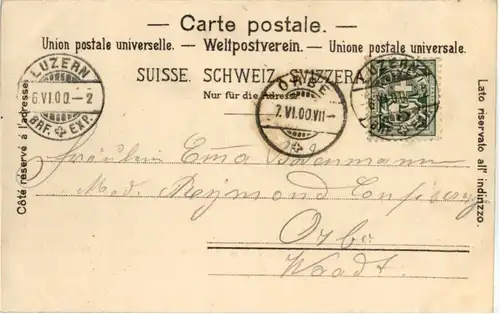 — Carte postale. —
Union postale universelle. — Weltpostverein. — Unione postale universale.
SUISSE. SCHWEIZ. SVIZZERA.
Nur für die Adresse.
Côté réservé à l'adresse.
Lato riservato all' indirizzo.
LUZERN
6.VI.00.–2
BRF. EXP.
ORBE
7.VI.00.VII–
LUZERN
Fräulein Emma
Mad. Reymond
Orbe
Waadt.